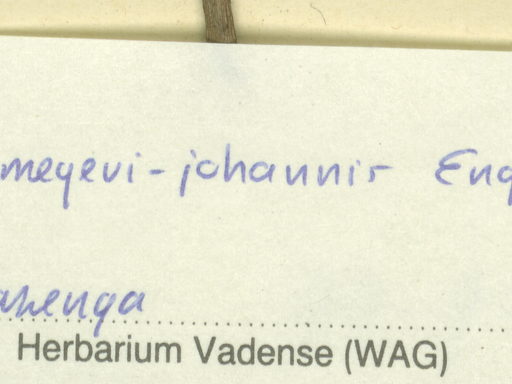 meyeri-johannis Eng
akenga
Herbarium Vadense (WAG)